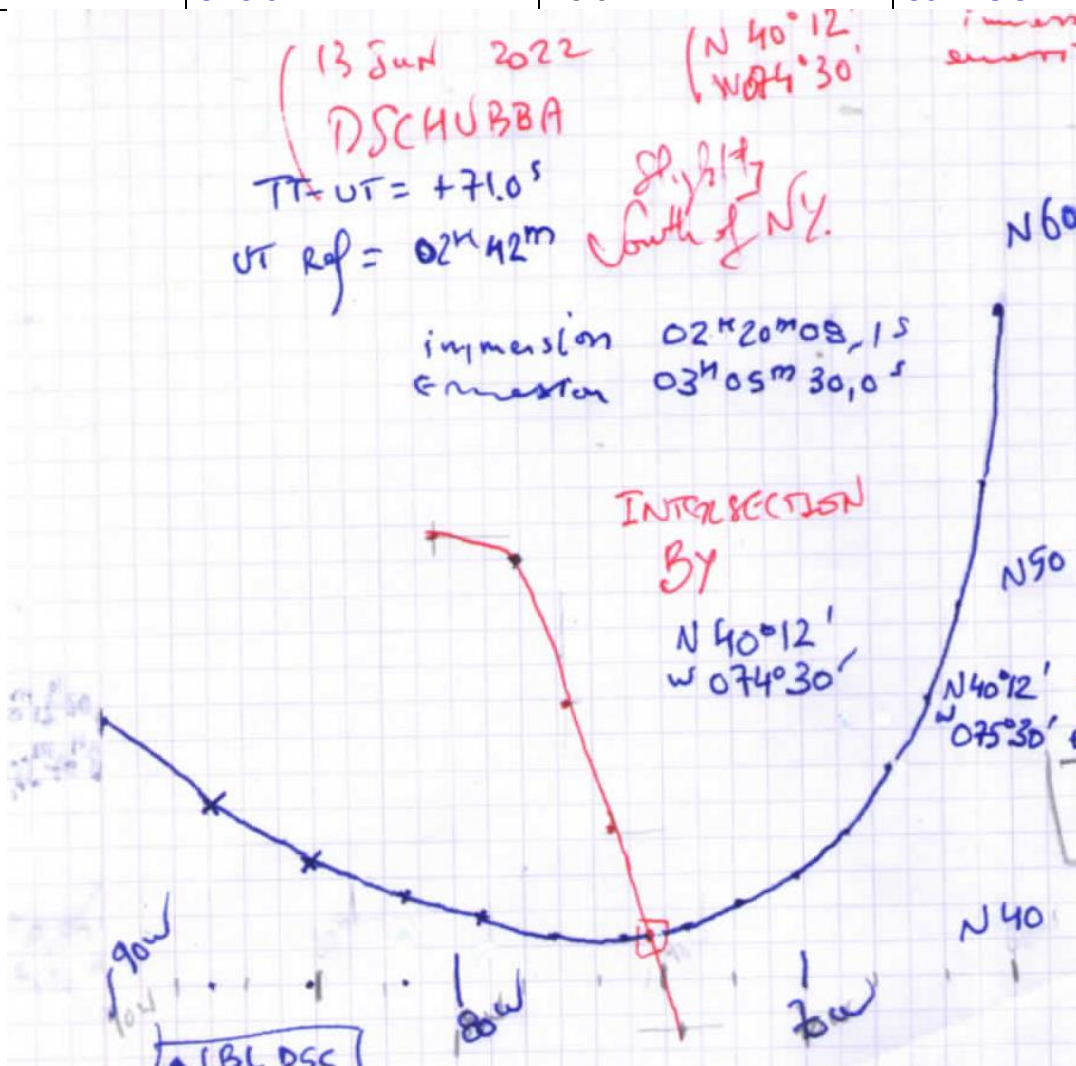 13 Jun 2022
DSCHUBBA
N 40°12
W074°30'
TT-UT = +71.0s
Slightly
South of NY.
UT Ref = 02H42m
N60
immersion 02H20m08,1s
Emersion 03H05m30,0s
INTERSECTION
BY
N 40°12'
W 074°30'
N50
N40°12'
W
075°30'
N40
90W
80W
70W